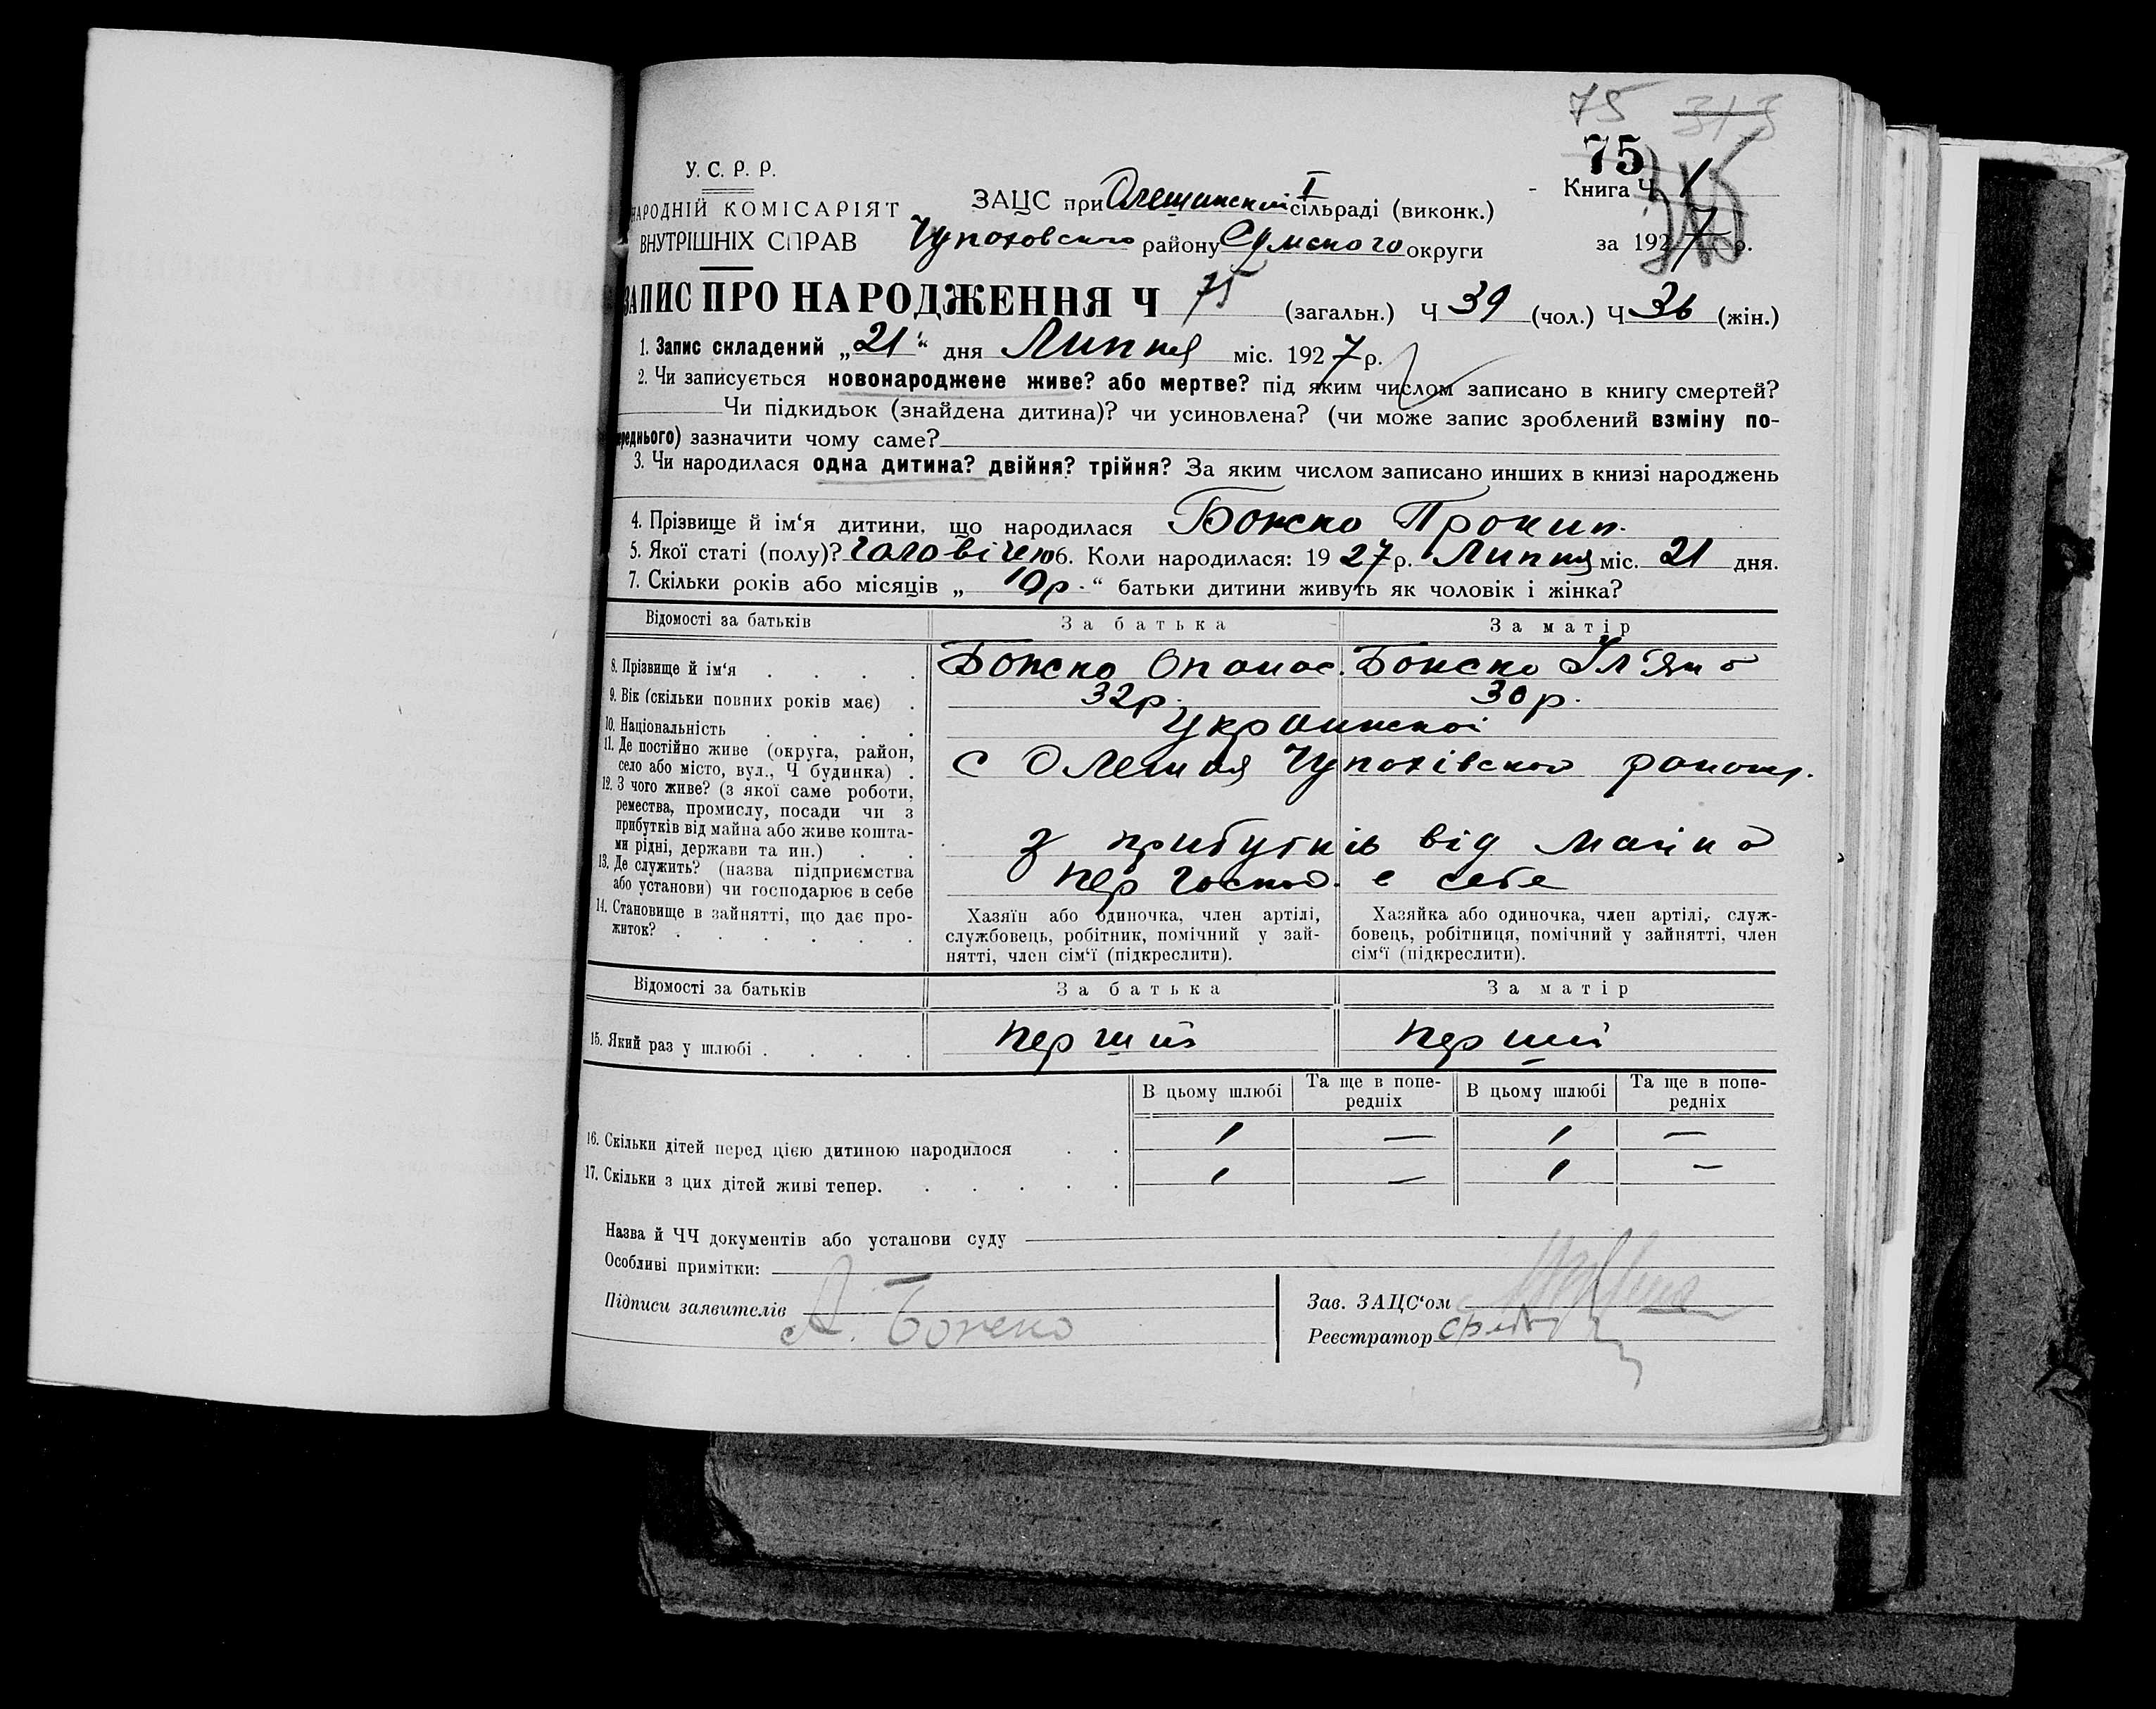 75 313
75
У. С. Р. Р.
Книга Ч 1
НАРОДНІЙ КОМІСАРІЯТ ЗАЦС при Олешинской I сільраді (виконк.)
ВНУТРІШНІХ СПРАВ Чупаховского району Сумского округи за 1927 р.
ЗАПИС ПРО НАРОДЖЕННЯ Ч 75 (загальн.) Ч 39 (чол.) Ч 36 (жін.)
1. Запис складений „21“ дня Липня міс. 1927 р.
2. Чи записується новонароджене живе? або мертве? під яким числом записано в книгу смертей?
Чи підкидьок (знайдена дитина)? чи усиновлена? (чи може запис зроблений взміну по-
переднього) зазначити чому саме?
3. Чи народилася одна дитина? двійня? трійня? За яким числом записано инших в книзі народжень
4. Прізвище й ім‘я дитини, що народилася Божко Прокип.
5. Якої статі (полу)? чоловічею 6. Коли народилася: 1927 р. Липня міс. 21 дня.
7. Скільки років або місяців „ 10 р. “ батьки дитини живуть як чоловік і жінка?
Відомості за батьків За батька За матір
8. Прізвище й ім‘я . . . . Божко Опанас. Божко Ул‘яна
9. Вік (скільки повних років має) . 32 р. 30 р.
10. Національність . . . . Украинской
11. Де постійно живе (округа, район,
село або місто, вул., Ч будинка) . с Олешня Чупахівского району.
12. З чого живе? (з якої саме роботи,
ремества, промислу, посади чи з
прибутків від майна або живе кошта-
ми рідні, держави та ин.) . . з прибутків від майна
13. Де служить? (назва підприємства
або установи) чи господарює в себе господ. в себе
14. Становище в зайнятті, що дає про-
житок? . . . . . .
Хазяїн або одиночка, член артілі,
службовець, робітник, помічний у зай-
нятті, член сім‘ї (підкреслити).
Хазяйка або одиночка, член артілі, служ-
бовець, робітниця, помічний у зайнятті, член
сім‘ї (підкреслити).
Відомості за батьків За батька За матір
15. Який раз у шлюбі . . . . перший перший
В цьому шлюбі Та ще в попе-редніх В цьому шлюбі Та ще в попе-редніх
16. Скільки дітей перед цією дитиною народилося . . 1 — 1 —
17. Скільки з цих дітей живі тепер. . . . . . 1 — 1 —
Назва й ЧЧ документів або установи суду
Особливі примітки:
Підписи заявителів А. Божко
Зав. ЗАЦС‘ом
Реєстратор